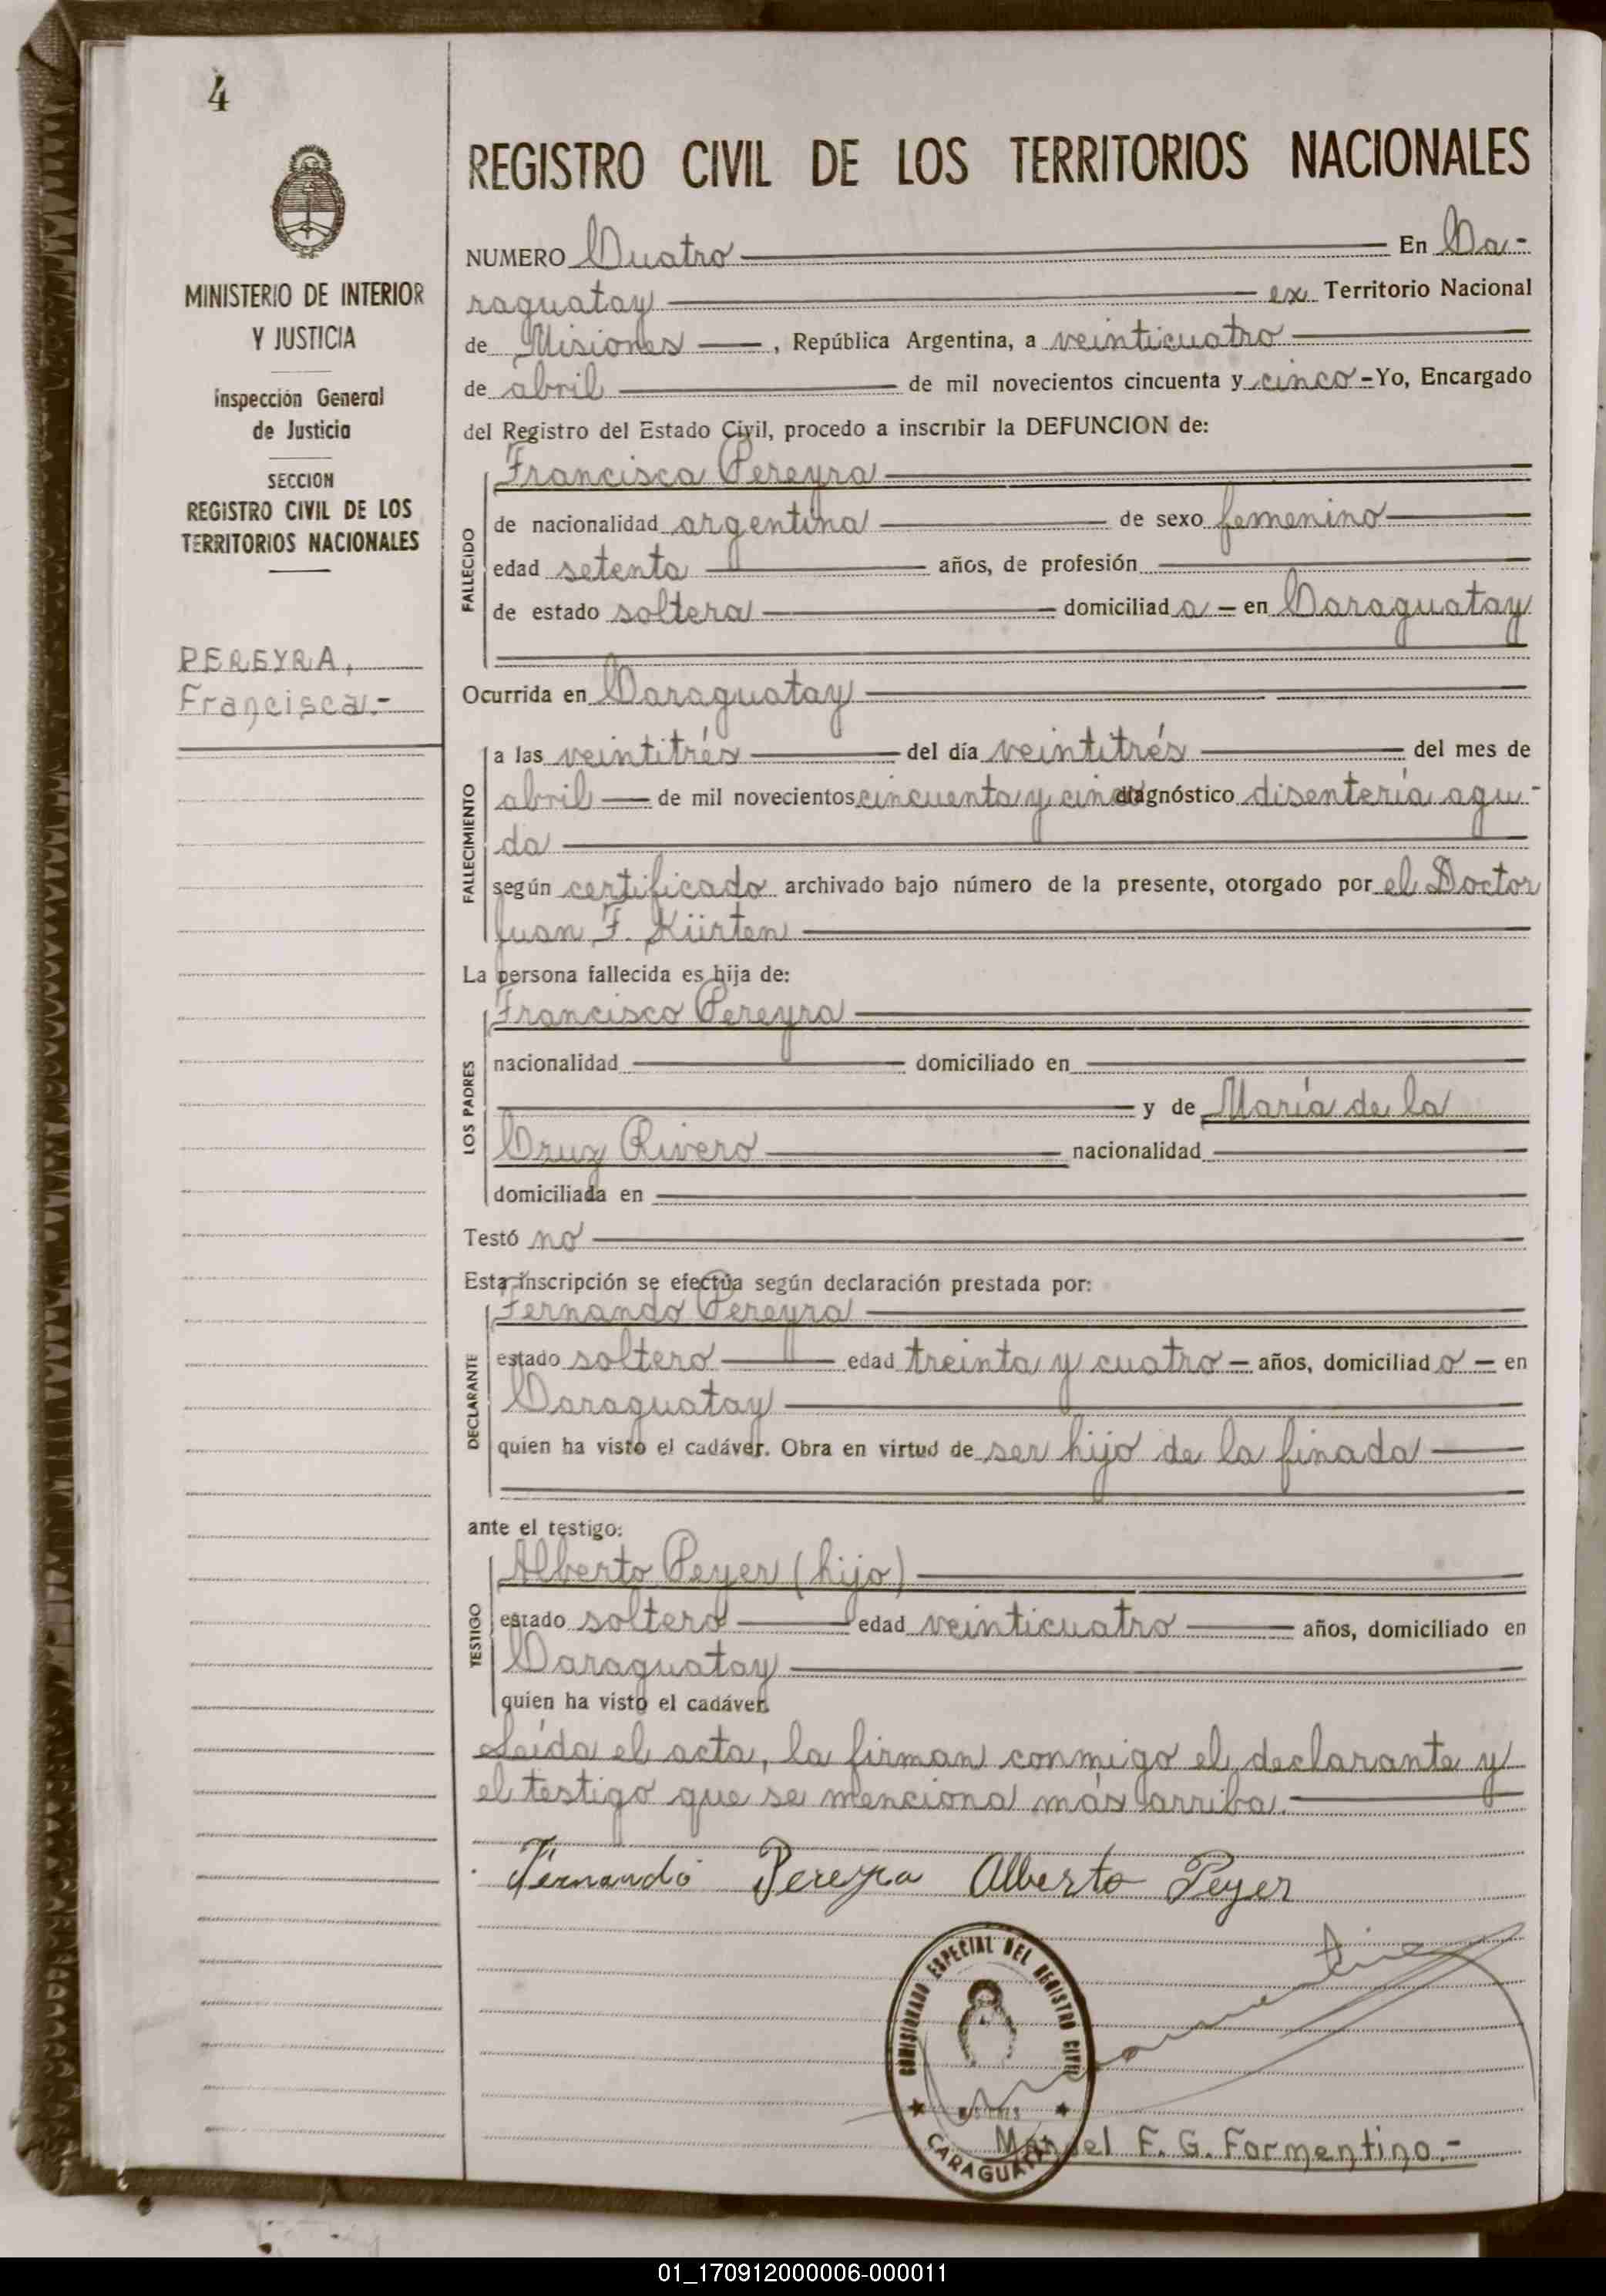 4
MINISTERIO DE INTERIOR
Y JUSTICIA
Inspección General
de Justicia
SECCION
REGISTRO CIVIL DE LOS
TERRITORIOS NACIONALES
PEREYRA,
Francisca.-
REGISTRO CIVIL DE LOS TERRITORIOS NACIONALES
NUMERO Cuatro En Ca-
raguatay ex Territorio Nacional
de Misiones, República Argentina, a veinticuatro
de abril de mil novecientos cincuenta y cinco - Yo, Encargado
del Registro del Estado Civil, procedo a inscribir la DEFUNCION de:
FALLECIDO
Francisca Pereyra
de nacionalidad argentina de sexo femenino
edad setenta años, de profesión
de estado soltera domiciliad a - en Caraguatay
Ocurrida en Caraguatay
FALLECIMIENTO
a las veintitrés del día veintitrés del mes de
abril de mil novecientos cincuenta y cinco diagnóstico disentería agu-
da
según certificado archivado bajo número de la presente, otorgado por el Doctor
Juan F. Kürten
La persona fallecida es hija de:
LOS PADRES
Francisco Pereyra
nacionalidad domiciliado en
y de María de la
Cruz Rivero nacionalidad
domiciliada en
Testó no
Esta inscripción se efectúa según declaración prestada por:
DECLARANTE
Fernando Pereyra
estado soltero edad treinta y cuatro - años, domiciliad o - en
Caraguatay
quien ha visto el cadáver. Obra en virtud de ser hijo de la finada
ante el testigo:
TESTIGO
Alberto Peyer (hijo)
estado soltero edad veinticuatro años, domiciliado en
Caraguatay
quien ha visto el cadáver.
Leída el acta, la firman conmigo el declarante y
el testigo que se menciona más arriba.
Fernando Pereyra Alberto Peyer
COMISIONADO ESPECIAL DEL REGISTRO CIVIL
MISIONES
CARAGUATAY
Manuel F. G. Formentino.-
01_170912000006-000011